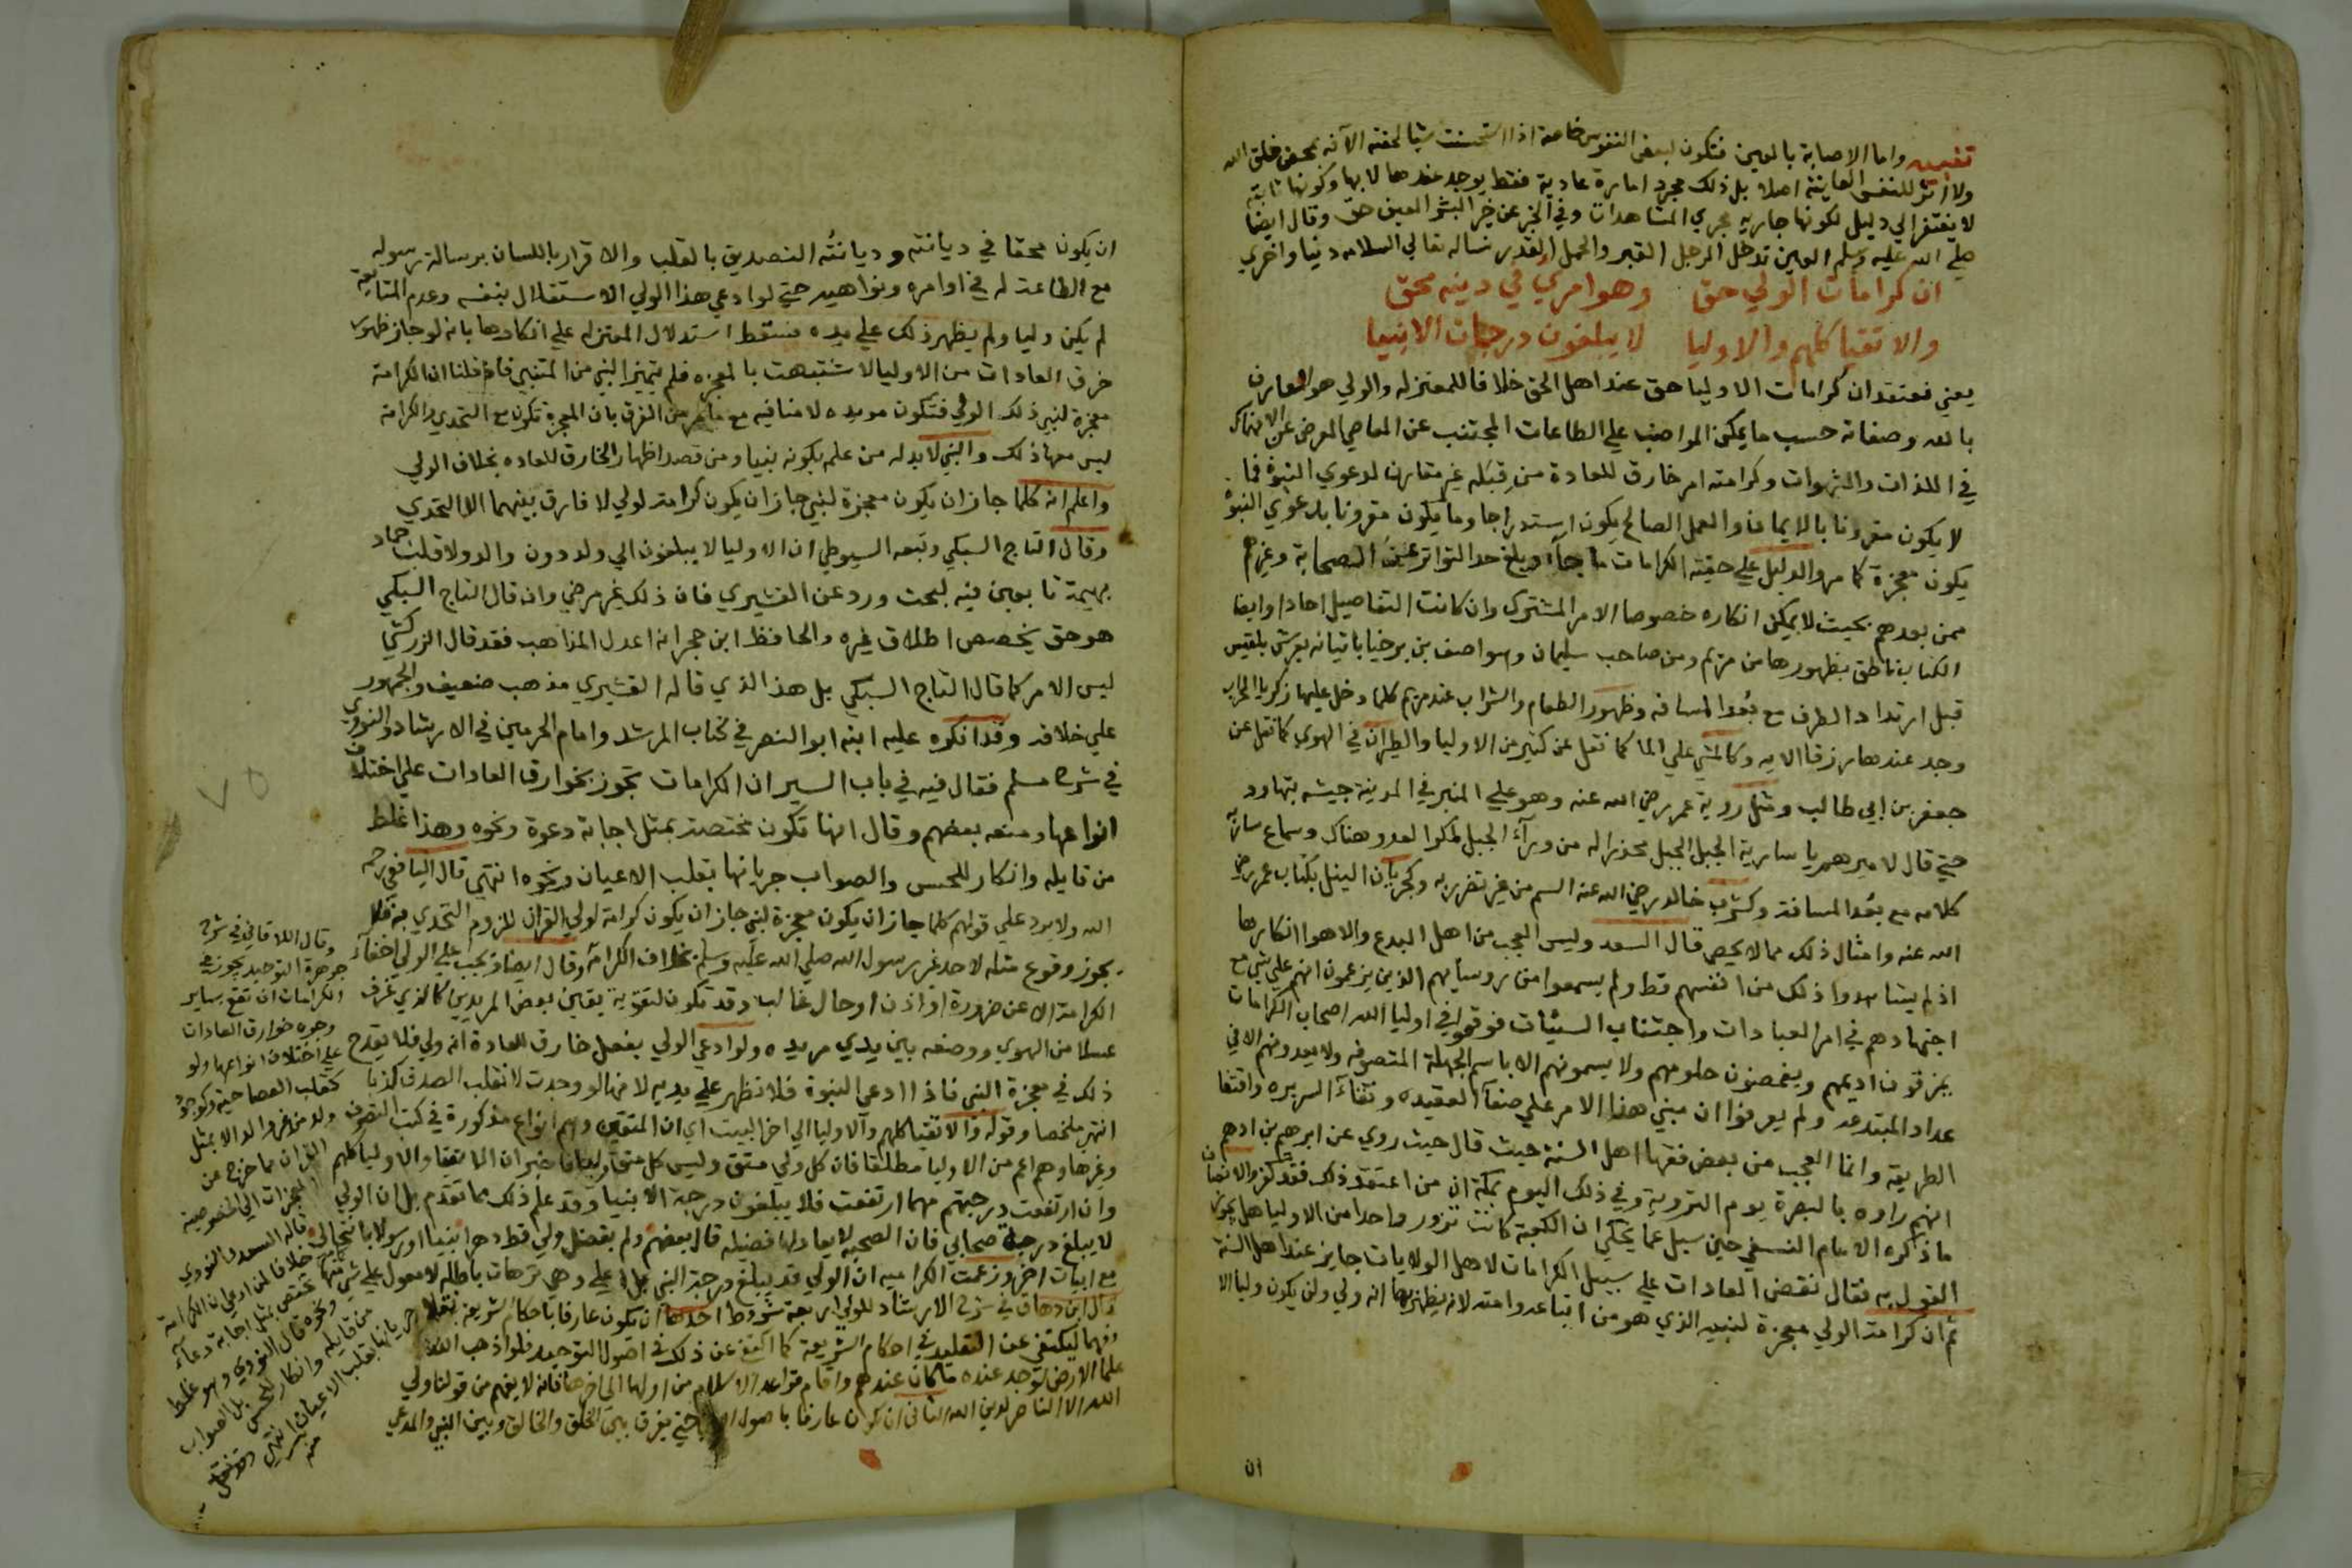 تتميم واما الاصابة بالعين فتكون لبعض النفوس خاصة اذا استحسنت شيا لحقته الآفة بمحض خلق الله
ولا اثر للنفس العاينة اصلا بل ذلك مجرد امارة عادية فقط يوجد عندها لا بها وكونها ثابتة
لا يفتقر الي دليل لكونها جاريه مجري المشاهدات وفي الخبر عن خير البشر العين حق وقال ايضا
صلي الله عليه وسلم العين تدخل الرجل القبر والجمل القدر نساله تعالي السلامه دنيا واخري
ان كرامات الولي حق وهو امري في دينه محق
والاتقيا كلهم والاوليا لا يبلغون درجات الانبيا
يعني فعتقد ان كرامات الاوليا حق عند اهل الحق خلافا للمعتزله والولي هو العارف
بالله وصفاته حسب ما يمكن المواضب علي الطاعات المجتنب عن المعاصي المعرض عن الانهماك
في اللذات والشهوات وكرامته امر خارق للعادة من قبله غير مقارن لدعوي النبوة فما
لا يكون مقرونا بالايمان والعمل الصالح يكون استدراجا وما يكون مقرونا بدعوي النبوة
يكون معجزة كما مر والدليل علي حقيقة الكرامات ما جآء وبلغ حد التواتر عن الصحابة وغيرهم
ممن بعدهم بحيث لا يمكن انكاره خصوصا الامر المشترك وان كانت التفاصيل احادا وايضا
الكتاب ناطق بظهورها من مريم ومن صاحب سليمان وهو اصف بن برخيا باتيانه بعرش بلقيس
قبل ارتداد الطرف مع بعد المسافه وظهور الطعام والشراب عند مريم كلما دخل عليها زكريا المحراب
وجد عندها رزقا الايه وكالمشي علي الما كما نقل عن كثير من الاوليا والطيران في الهوي كما نقل عن
جعفر بن ابي طالب ومثل روية عمر رضي الله عنه وهو علي المنبر في المدينة جيشه بنهاوند
حتي قال لاميرهم يا سارية الجبل الجبل تحذيرا له من ورآء الجبل لمكر العدو هناك وسماع ساريه
كلامه مع بعد المسافة وكشرب خالد رضي الله عنه السم من غير تضرر به وكجريان النيل بكتاب عمر رضي
الله عنه وامثال ذلك مما لا يحصي قال السعد وليس العجب من اهل البدع والاهوا انكارها
اذ لم يشاهدوا ذلك من انفسهم قط ولم يسمعوا من روسايهم الذين يزعمون انهم علي شي مع
اجتهادهم في امر العبادات واجتناب السيئات فوقعوا في اوليا الله اصحاب الكرامات
يمزقون اديمهم ويمضغون حلومهم ولا يسمونهم الا باسم الجهلة المتصوفه ولا يعدونهم الا في
عداد المبتدعه ولم يعرفوا ان مبني هذا الامر علي صفآء العقيده ونقآء السريره واقتفا
الطريقة وانما العجب من بعض فقها اهل السنة حيث قال حيث روي عن ابرهيم بن ادهم
انهم راوه بالبصرة يوم التروية وفي ذلك اليوم بمكة ان من اعتقد ذلك فقد كفر والانصاف
ما ذكره الامام النسفي حين سيل عما يحكي ان الكعبة كانت تزور واحدا من الاوليا هل يجوز
القول به فقال نقض العادات علي سبيل الكرامات لاهل الولايات جايز عند اهل السنة
ثم ان كرامة الولي معجزة لنبيه الذي هو من اتباعه وامته لانه يظهر بها انه ولي ولن يكون وليا الا
ان
ان يكون محقا في ديانته وديانته التصديق بالقلب والاقرار باللسان برسالة رسوله
مع الطاعة له في اوامره ونواهيه حتي لو ادعي هذا الولي الاستقلال بنفسه وعدم المتابعة
لم يكن وليا ولم يظهر ذلك علي يده فسقط استدلال المعتزله علي انكارها بانه لو جاز ظهور
خرق العادات من الاوليا لاشتبهت بالمعجزه فلم يتميز النبي من المتنبي فاذا قلنا ان الكرامة
معجزة لنبي ذلك الولي فتكون مويده لا منافيه مع ما مر من الفرق بان المعجزة تكون مع التحدي والكرامة
ليس معها ذلك والنبي لا بد له من علمه بكونه نبيا ومن قصد اظهار الخارق للعاده بخلاف الولي
واعلم انه كلما جاز ان يكون معجزة لنبي جاز ان يكون كرامة لولي لا فارق بينهما الا التحدي
وقال التاج السبكي وتبعه السيوطي ان الاوليا لا يبلغون الي ولد دون والد ولا قلب جماد
بهيمة تابعين فيه لبحث ورد عن القشيري فان ذلك غير مرضي وان قال التاج السبكي
هو حق يخصص اطلاق غيره والحافظ ابن حجر انه اعدل المذاهب فقد قال الزركشي
ليس الامر كما قال التاج السبكي بل هذا الذي قاله القشيري مذهب ضعيف والجمهور
علي خلافه وقد انكره عليه ابنه ابو النصر في كتاب المرشد وامام الحرمين في الارشاد والنووي
في شرح مسلم فقال فيه في باب السير ان الكرامات تجوز بخوارق العادات علي اختلاف
انواعها ومنعه بعضهم وقال انها تكون مختصة بمثل اجابة دعوة ونحوه وهذا غلط
من قايله وانكار للحس والصواب جريانها بقلب الاعيان ونحوه انتهي قال اليافعي رحمه
الله ولا يرد علي قولهم كلما جاز ان يكون معجزة لنبي جاز ان يكون كرامة لولي القران للزوم التحدي به فلا
يجوز وقوع مثله لاحد غير رسول الله صلي الله عليه وسلم بخلاف الكرامة وقال ايضا ويجب علي الولي اخفآء
الكرامة الا عن ضرورة او اذن او حال غالب وقد تكون لتقوية يقين بعض المريدين كالذي غرف
عسلا من الهوي ووضعه بين يدي مريده ولو ادعي الولي بفعل خارق للعادة انه ولي فلا يقدح
ذلك في معجزة النبي فاذا ادعي النبوة فلا تظهر علي يديه لانها لو وجدت لانقلب الصدق كذبا
انتهي ملخصا وقوله والاتقيا كلهم والاوليا الي اخر البيت اي ان المتقين وهم انواع مذكورة في كتب التصوف
وغيرها وهم اعم من الاوليا مطلقا فان كل ولي متق وليس كل متق وليا فاخبر ان الاتقيا والاوليا كلهم
وان ارتفعت درجتهم مهما ارتفعت فلا يبلغون درجة الانبيا وقد علم ذلك مما تقدم بل ان الولي
لا يبلغ درجة صحابي فان الصحبه لا يعادلها فضيله قال بعضهم ولم يفضل ولي قط دهرا نبيا او رسولا بانتحال
مع ابيات اخر وزعمت الكراميه ان الولي قد يبلغ درجة النبي بل اعلي وهي ترهات باطله لا معول علي شي منها
قال ابن دهاق في شرح الارشاد للولي اربعة شروط احدها ان يكون عارفا باحكام الشريعة نقلا
وفهما ليكتفي عن التقليد في احكام الشريعة كما اكتفي عن ذلك في اصول التوحيد فلو اذهب الله
علما الارض لوجد عنده ما كان عندهم واقام قواعد الاسلام من اولها الي اخرها فانه لا يفهم من قولنا ولي
الله الا الناصر لدين الله الثاني ان يكون عارفا باصول حتي يفرق بين الخلق والخالق وبين النبي والمدعي
وقال اللاقاني في شرح
جوهرة التوحيد يجوز في
الكرامات ان تقع بساير
وجوه خوارق العادات
علي اختلاف انواعها ولو
كقلب العصا حية وكوجود
ولد من غير والد الا بمثل
القران مما خرج من
المعجزات الي الخصوصية
قاله السعد والنووي
خلافا لمن ادعي ان الكرامة
تختص بمثل اجابة دعآء
ونحوه قال النووي وهو غلط
من قايله وانكار للحس بل الصواب
جريانها بقلب الاعيان انتهي
منه
٧٥